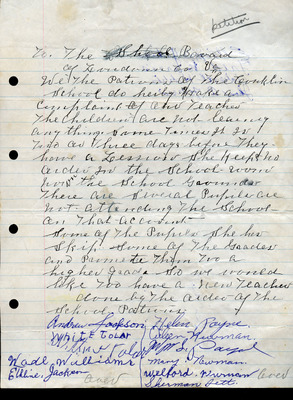 petition
To. The School Boward
of Loudoun Co. Va
We The Patrons of The Conklin
School do heiby Make an
Complaint of Our Teacher
The Children are not learng
any thing some Times it is
Two or three days before They
have a Lesson She keep no
order in the School room
nor the School Grounds
There are Several Pupils are
not attending The School
on That account
Some of The Pupils She has
Skip Some of The Graades
and Promote Them Too a
higher Grade So we would
like Too have a New Teacher
done by The order of The
School Patrons
Andrew Jackson Helen Payne
White Tolar
Tolar
Wade Williams Mary Newman
Edline Jackson Welford Newman
over Sherman over